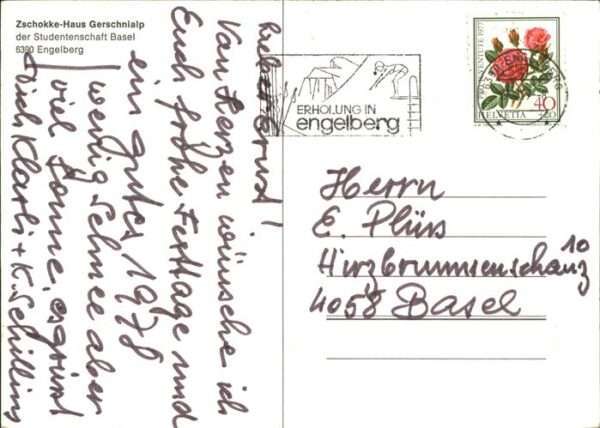 Zschokke-Haus Gerschnialp
der Studentenschaft Basel
6390 Engelberg
Lieber Ernst!
Von Herzen wünsche ich
Euch frohe Festtage und
ein gutes 1978
wenig Schnee aber
viel Sonne, es grüsst
Dich Klärli + K. Schilling
ERHOLUNG IN
engelberg
JUVENTUTE 1977
HELVETIA
40
+20
Herrn
E. Plüss
Hirzbrunnenschanz 10
4058 Basel